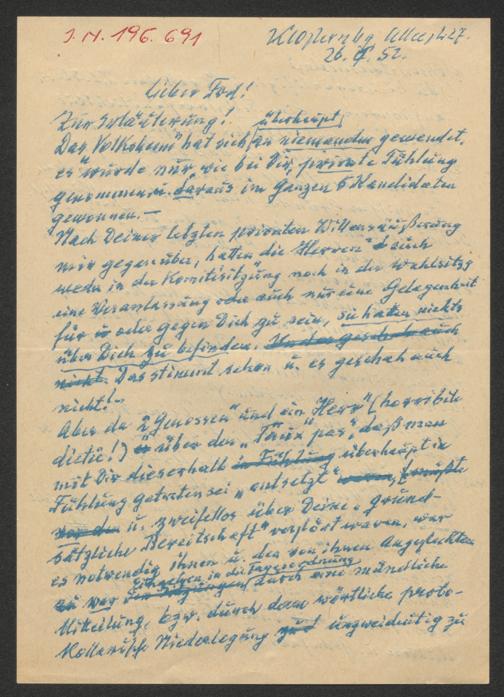 J.N. 196.691
26. 5. 52.
Lieber Fred!
Zur Erläuterung! überhaupt
Das "Volksheim" hat sich an niemanden gewendet,
es wurde nur, wie bei Dir, private Fühlung
genommen. daraus im Ganzen 6 Kandidaten
gewonnen.—
Nach Deiner letzten privaten Willensäußerung
mir gegenüber, hatten die "Herren" auch
weder in der Komiteesitzung noch in der Wahlsitzg
eine Veranlassung oder auch nur eine Gelegenheit
für oder gegen Dich zu sein, sie hatten nichts
über Dich zu befinden. Und das geschah auch
nicht. Das stimmt schon u. es geschah auch
nicht!—
Aber da "2 Genossen" und ein "Herr" (horribile
dictu!) über den "Faux pas", daß man
mit Dir dieserhalb in Fühlung überhaupt in
Fühlung getreten sei "entsetzt"
u. zweifellos über Deine "grund-
sätzliche Bereitschaft" verstört waren, war
es notwendig ihnen u. den von ihnen Angesteckten
Eingehen in die Tagesordnung
zu vor den Sitzungen durch eine mündliche
Mitteilung, bzw. durch dem wörtliche proto-
kollarische Niederlegung unzweideutig zu